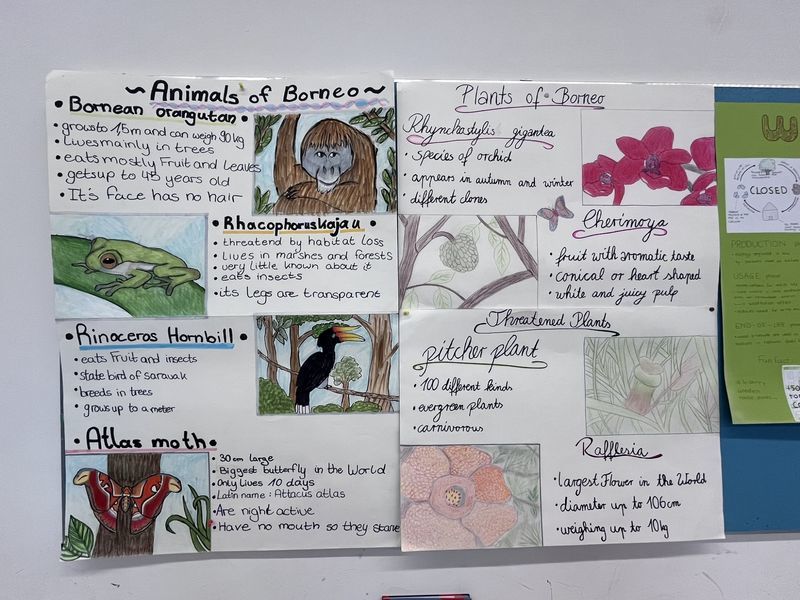 ~Animals of Borneo~
• Bornean orangutan •
• grows to 1,5m and can weigh 90kg
• Lives mainly in trees
• eats mostly Fruit and Leaves
• gets up to 45 years old
• It's face has no hair
• Rhacophorus Kajau •
• threatend by habitat loss
• Lives in marshes and forests
• very little known about it
• eats insects
• its Legs are transparent
• Rinoceros Hornbill •
• eats Fruit and insects
• state bird of sarawak
• breeds in trees
• grows up to a meter
• Atlas moth •
• 30 cm large
• Biggest butterfly in the World
• Only Lives 10 days
• Latin name : Attacus atlas
• Are night active
• Have no mouth so they
Plants of Borneo
Rhynchostylis gigantea
• species of orchid
• appears in autumn and winter
• different clones
Cherimoya
• fruit with aromatic taste
• conical or heart shaped
• white and juicy pulp
Threatened Plants
pitcher plant
• 100 different kinds
• evergreen plants
• carnivorous
Rafflesia
• largest Flower in the World
• diameter up to 106cm
• weighing up to 10kg
W
CLOSED
PRODUCTION
USAGE
END-OF-LIFE
Fun Fact